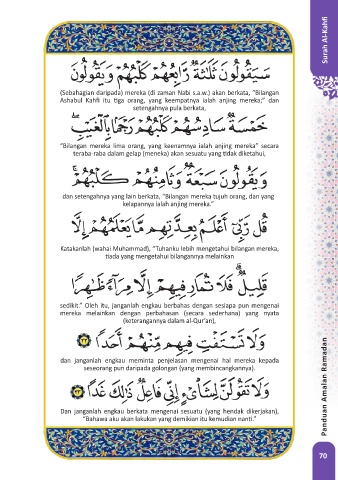 Surah Al-Kahfi
سَيَقُولُونَ ثَلَاثَةٌ رَّابِعُهُمْ كَلْبُهُمْ وَيَقُولُونَ
(Sebahagian daripada) mereka (di zaman Nabi s.a.w.) akan berkata, “Bilangan
Ashabul Kahfi itu tiga orang, yang keempatnya ialah anjing mereka;” dan
setengahnya pula berkata,
خَمْسَةٌ سَادِسُهُمْ كَلْبُهُمْ رَجْمًا بِالْغَيْبِ ۖ
“Bilangan mereka lima orang, yang keenamnya ialah anjing mereka” secara
teraba-raba dalam gelap (meneka) akan sesuatu yang tidak diketahui,
وَيَقُولُونَ سَبْعَةٌ وَثَامِنُهُمْ كَلْبُهُمْ ۚ
dan setengahnya yang lain berkata, “Bilangan mereka tujuh orang, dan yang
kelapannya ialah anjing mereka.”
قُل رَّبِّي أَعْلَمُ بِعِدَّتِهِم مَّا يَعْلَمُهُمْ إِلَّا
Katakanlah (wahai Muhammad), “Tuhanku lebih mengetahui bilangan mereka,
tiada yang mengetahui bilangannya melainkan
قَلِيلٌ ۗ فَلَا تُمَارِ فِيهِمْ إِلَّا مِرَاءً ظَاهِرًا
sedikit.” Oleh itu, janganlah engkau berbahas dengan sesiapa pun mengenai
mereka melainkan dengan perbahasan (secara sederhana) yang nyata
(keterangannya dalam al-Qur’an),
وَلَا تَسْتَفْتِ فِيهِم مِّنْهُمْ أَحَدًا ٢٢
dan janganlah engkau meminta penjelasan mengenai hal mereka kepada
seseorang pun daripada golongan (yang membincangkannya).
وَلَا تَقُولَنَّ لِشَايْءٍ إِنِّي فَاعِلٌ ذَٰلِكَ غَدًا ٢٣
Dan janganlah engkau berkata mengenai sesuatu (yang hendak dikerjakan),
“Bahawa aku akan lakukan yang demikian itu kemudian nanti.”
Panduan Amalan Ramadan
70